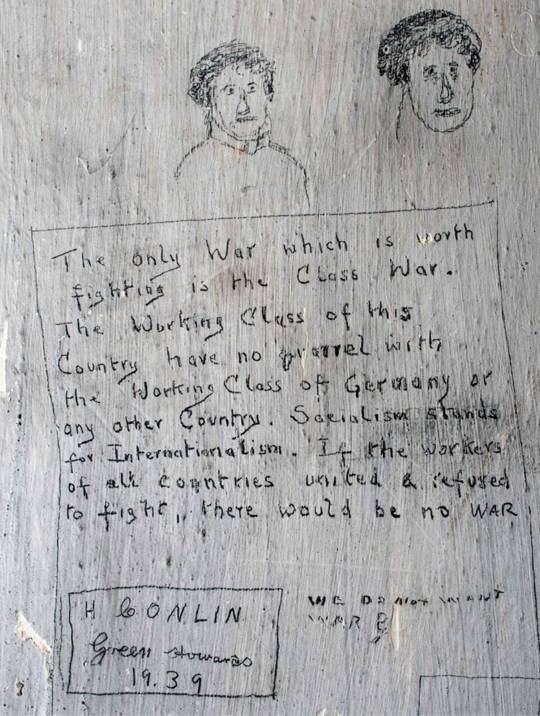 The only War which is worth
fighting is the Class War.
The Working Class of this
Country have no quarrel with
the Working Class of Germany or
any other Country. Socialism stands
for Internationalism. If the workers
of all countries united & refused
to fight, there would be no WAR
H CONLIN
Green Howards
19.39
WE DO NOT WANT
WAR